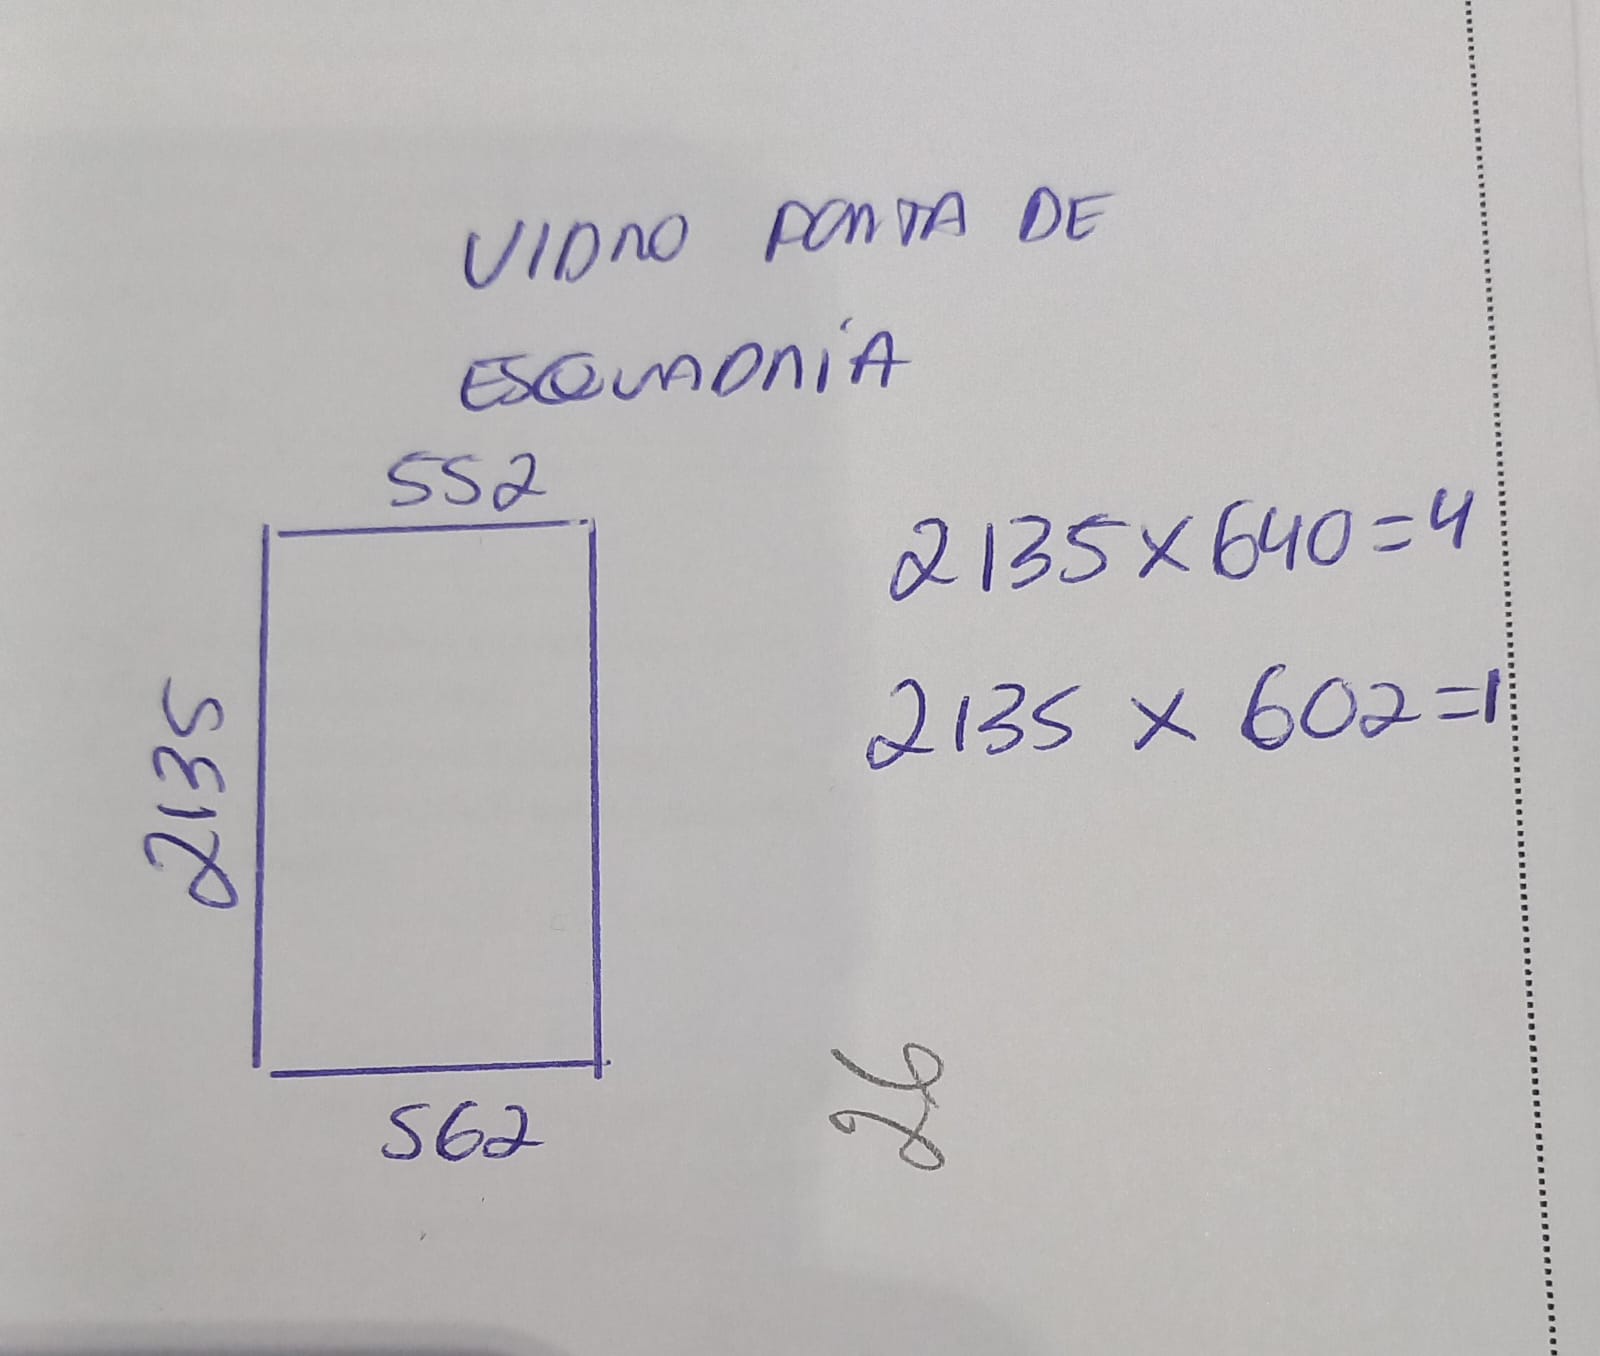 VIDRO PORTA DE
ESQUADRIA
552
2135
562
2135 x 640 = 4
2135 x 602 = 1
26